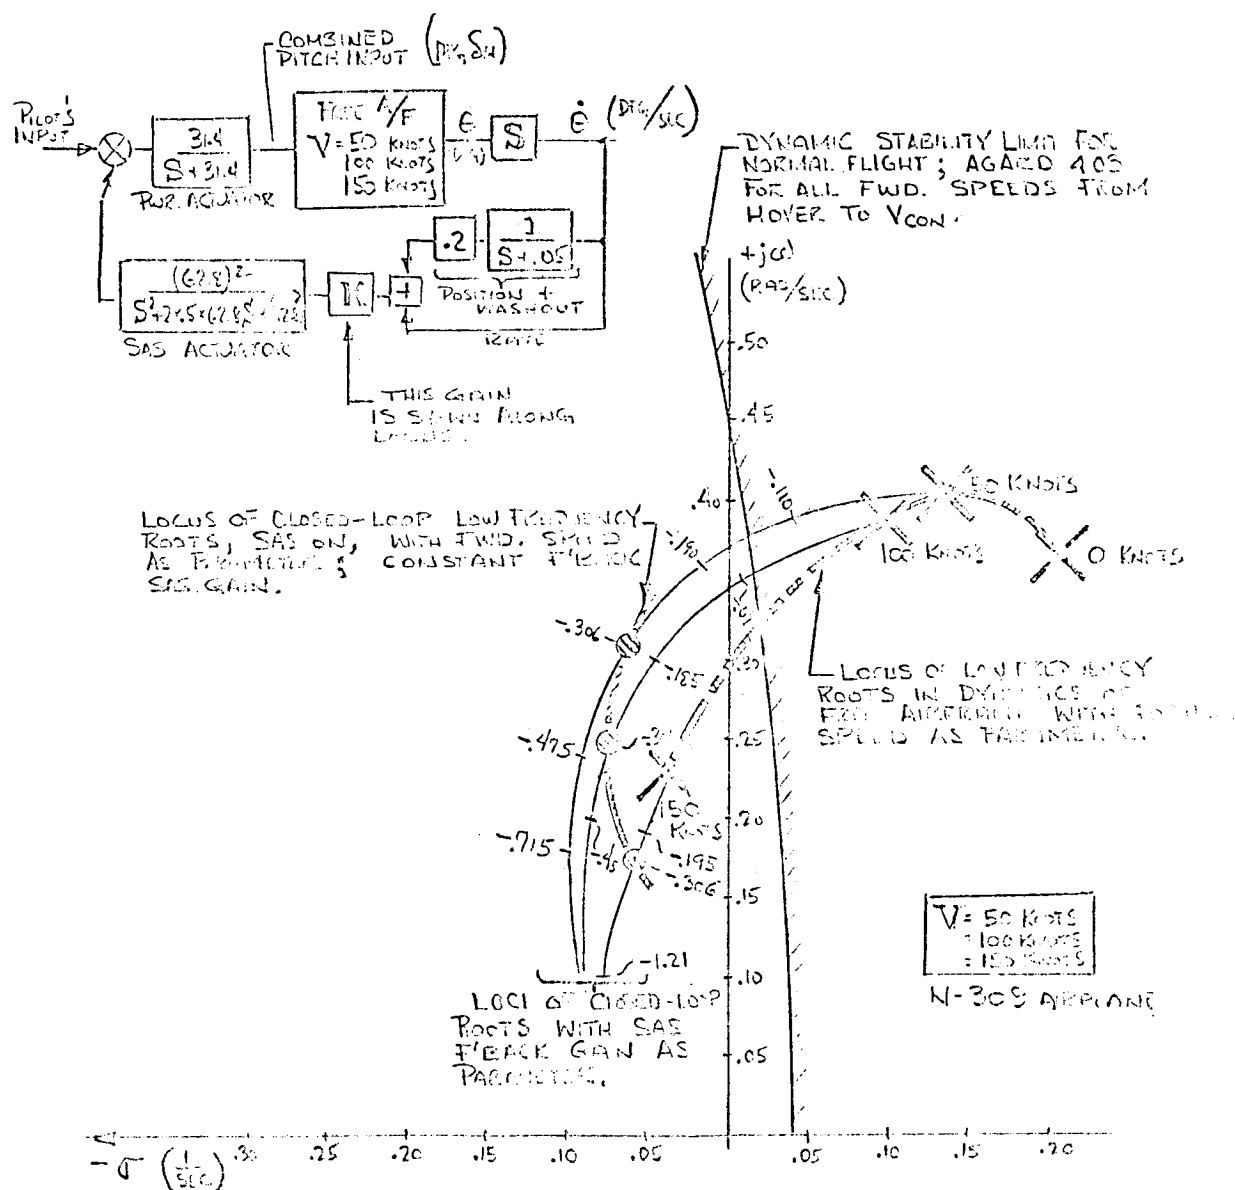 COMBINED
PITCH INPUT
PILOT'S
INPUT
31.4
S+31.4
PWR. ACTUATOR
FREE A/F
V = 50 KNOTS
100 KNOTS
150 KNOTS
θ
S
θ̇ (DEG/SEC)
.2
1
S+.05
POSITION +
WASHOUT
RATE
+
K
(62.8)²
SAS ACTUATOR
THIS GAIN
IS SHOWN ALONG
DYNAMIC STABILITY LIMIT FOR
NORMAL FLIGHT; AGARD 408
FOR ALL FWD. SPEEDS FROM
HOVER TO VCON.
+jω
(RAD/SEC)
.50
.45
.40
.30
.25
.20
.15
.10
.05
50 KNOTS
100 KNOTS
0 KNOTS
150
KNOTS
-.110
-.190
-.306
-.475
-.715
-.185
-.195
-.306
-1.21
LOCUS OF CLOSED-LOOP LOW FREQUENCY
ROOTS, SAS ON, WITH FWD. SPEED
AS PARAMETER; CONSTANT F'BACK
SAS GAIN.
LOCUS OF LOW FREQUENCY
ROOTS IN DYNAMICS OF
FREE AIRCRAFT WITH
SPEED AS PARAMETER.
LOCI OF CLOSED-LOOP
ROOTS WITH SAS
F'BACK GAIN AS
PARAMETER.
V = 50 KNOTS
= 100 KNOTS
= 150 KNOTS
N-309 AIRPLANE
-σ (1/SEC)
.30 .25 .20 .15 .10 .05 .05 .10 .15 .20